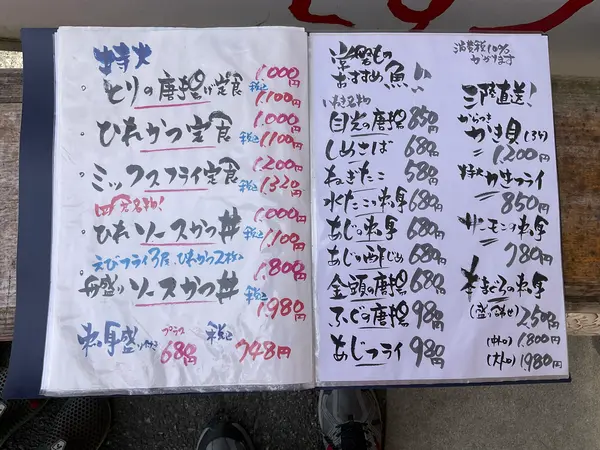 特大
・とりの唐揚げ定食 1.000円
税込 1.100円
・ひれかつ定食 1.000円
税込 1.100円
・ミックスフライ定食 1.200円
税込 1.320円
名物!
・ひれソースかつ丼 1.000円
税込 1.100円
えびフライ3尾、ひれかつ2枚
・舟盛りソースかつ丼 1.800円
税込 1.980円
刺身盛り付き プラス680円 税込 748円
常磐もの
おすすめ魚!!
いわき名物
目光の唐揚 850円
しめさば 680円
ねぎたこ 580円
水たこの刺身 680円
あじの刺身 680円
あじの酢じめ 680円
金頭の唐揚 680円
ふぐの唐揚 980円
あじフライ 980円
消費税10%
かかります
三陸直送!
からつき
かき貝(3ケ)
1200円
特大かきフライ
850円
サーモンの刺身
780円
本まぐろの刺身
(盛り合せ) 2,500円
(中トロ) 1.800円
(大トロ) 1.980円